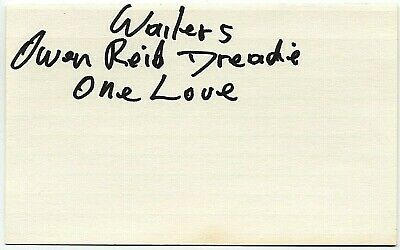 Wailers
Owen Reid Dreadie
One Love